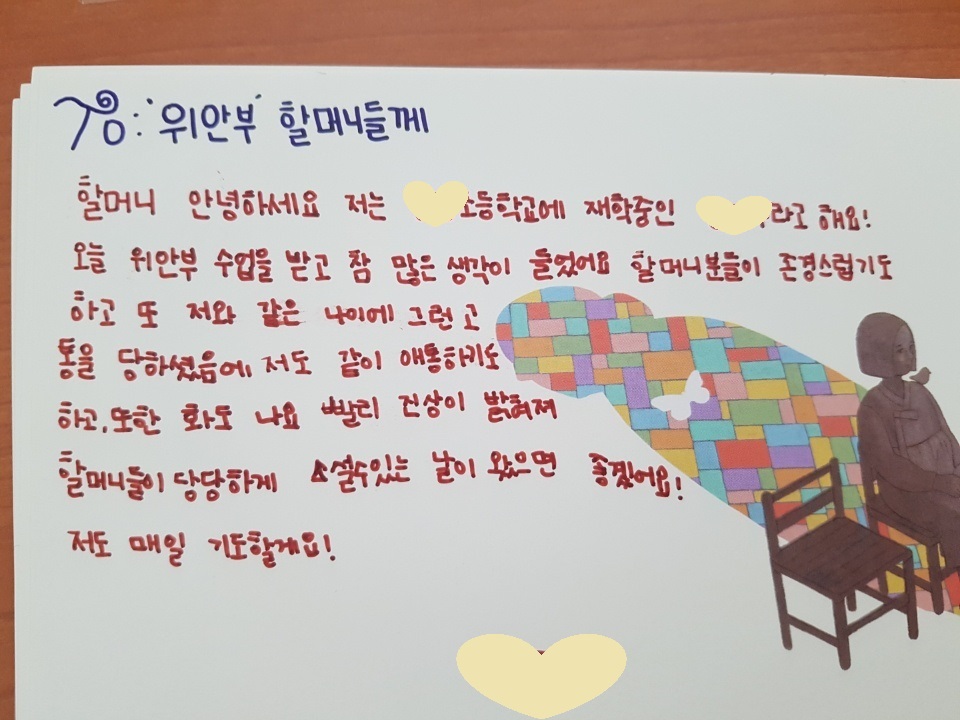 To: '위안부' 할머니들께
할머니 안녕하세요 저는 초등학교에 재학중인 라고 해요!
오늘 위안부 수업을 받고 참 많은 생각이 들었어요 할머니분들이 존경스럽기도
하고 또 저와 같은 나이에 그런 고
통을 당하셨음에 저도 같이 애통하기도
하고, 또한 화도 나요 빨리 진상이 밝혀져
할머니들이 당당하게 설수있는 날이 왔으면 좋겠어요!
저도 매일 기도할게요!